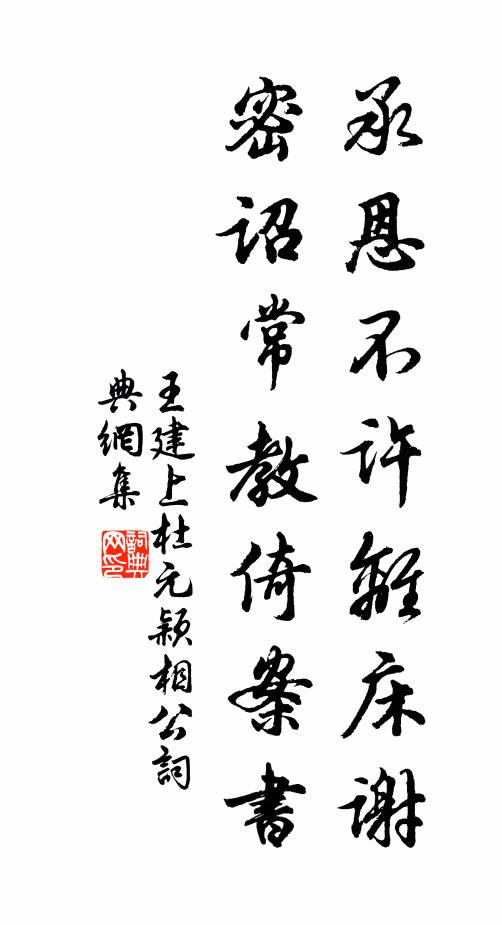 承恩不许離床谢
密诏常教倚案書
王建上杜元颖相公詞
典網集
詞典网印